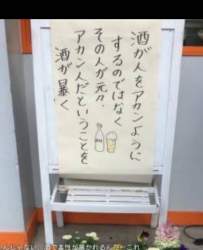 酒が人をアカンように
するのではなく
その人が元々、
アカン人だということを
酒が暴く